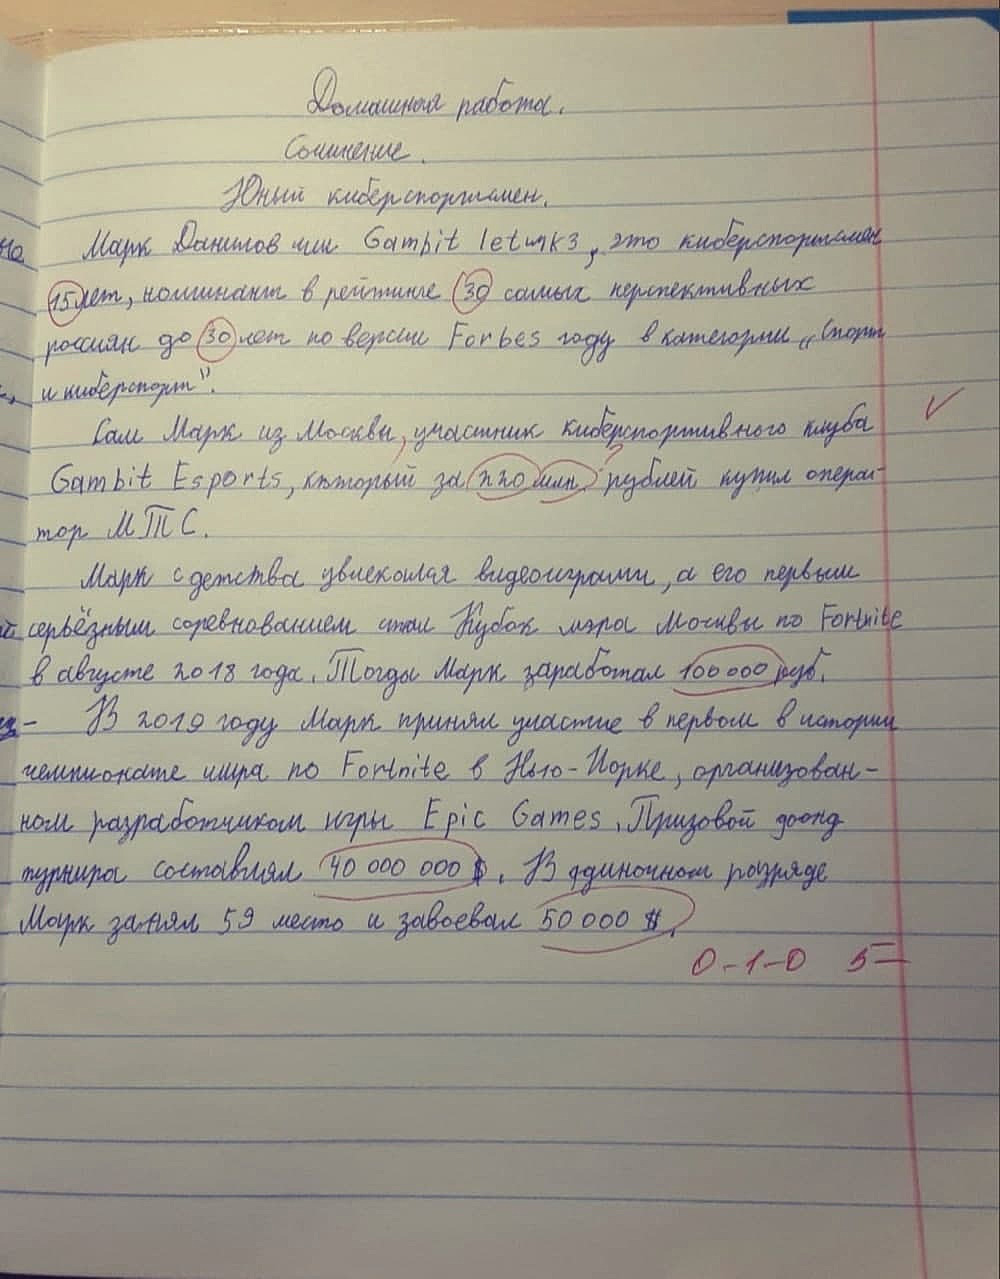 Домашняя работа.
Сочинение.
Юный киберспортсмен.
Марк Данилов или Gambit letw1k3, это киберспортсмен
15 лет, номинант в рейтинге 30 самых перспективных
россиян до 30 лет по версии Forbes году в категории „Спорт
и киберспорт".
Сам Марк из Москвы, участник киберспортивного клуба
Gambit Esports, который за 220 млн. рублей купил опера-
тор МТС.
Марк с детства увлекался видеоиграми, а его первым
серьёзным соревнованием стал Кубок мэра Москвы по Fortnite
в августе 2018 года. Тогда Марк заработал 100 000 руб.
В 2019 году Марк принял участие в первом в истории
чемпионате мира по Fortnite в Нью-Йорке, организован-
ном разработчиком игры Epic Games. Призовой фонд
турнира составлял 40 000 000 $. В одиночном разряде
Марк занял 59 место и завоевал 50 000 $.
0-1-0 5-